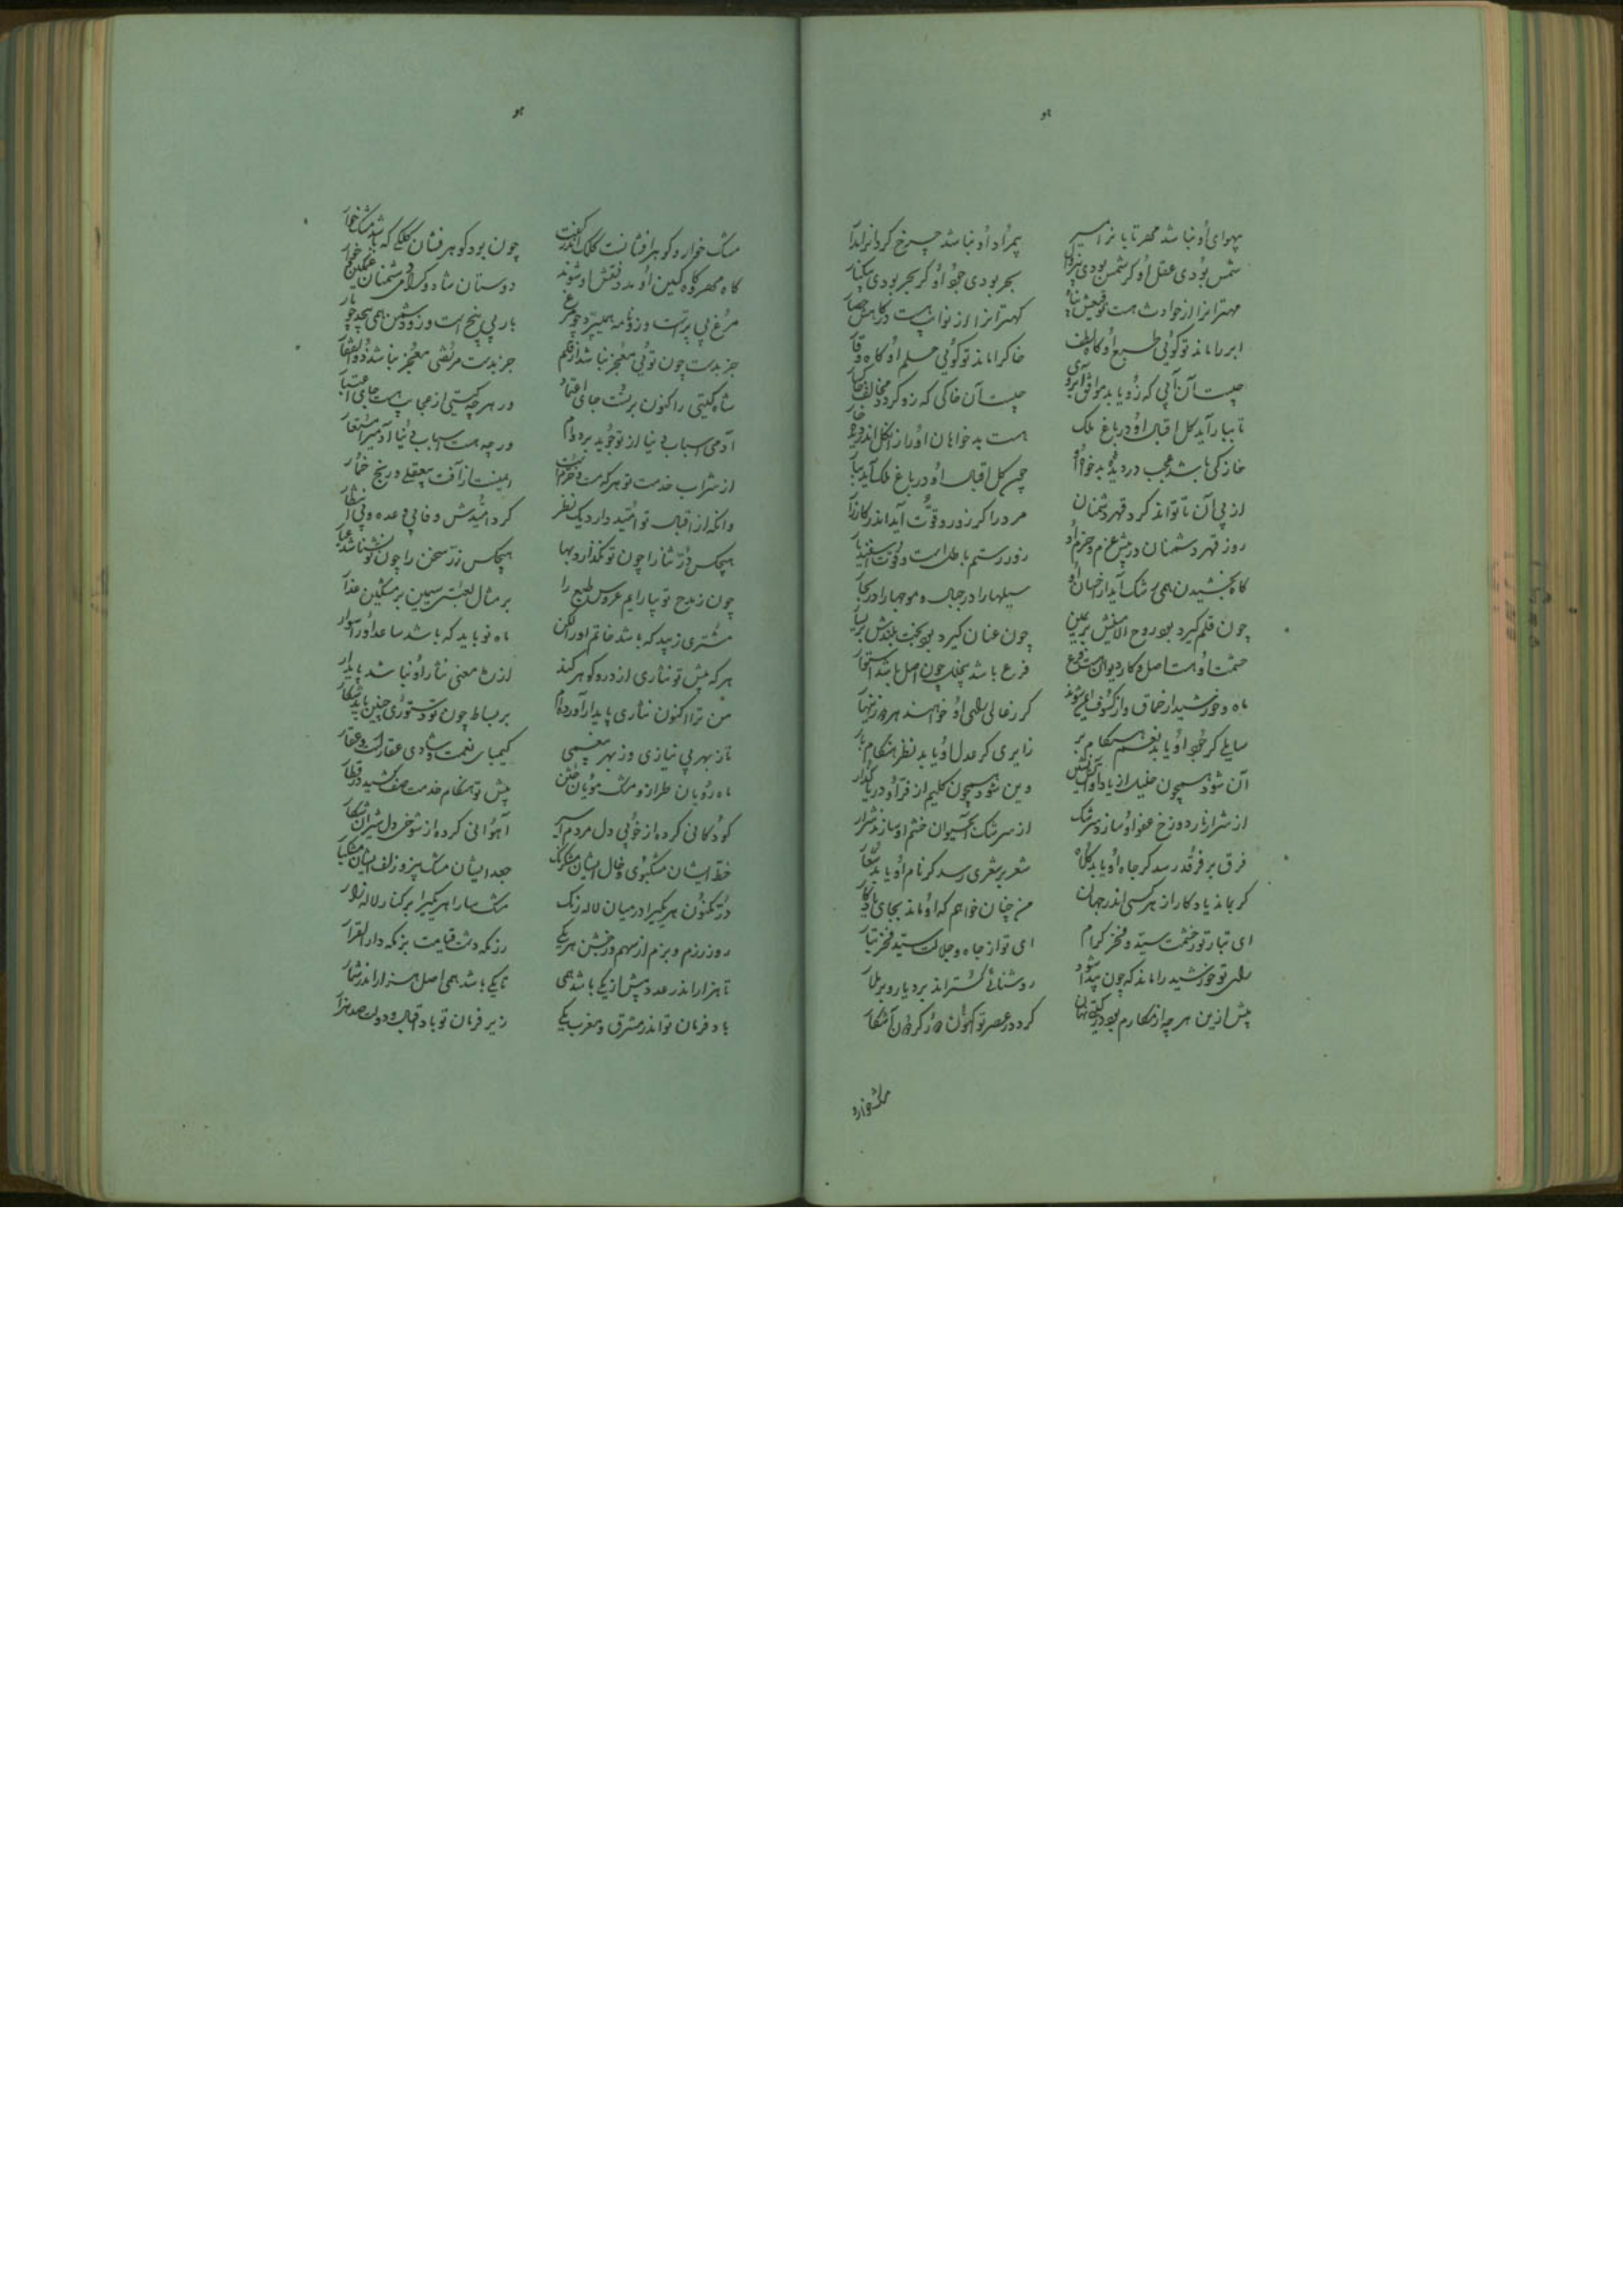 هو
بیهوای او نباشد مهر تابانرا مسیر
بیمراد او نباشد چرخ گردانرا مدار
شمس بودی عقل او گر شمس بودی بیزوال
بحر بودی جود او گر بحر بودی بیکنار
مهترانرا از حوادث هست توقیعش پناه
کهترانرا از نوایب هست درگاهش حصار
ابر را ماند تو گوئی طبع او گاه لطف
خاکرا ماند تو گوئی حلم او گاه وقار
چیست آن آبی که زو یابد موافق آبروی
چیست آن خاکی که زو گردد مخالف خاکسار
تا ببار آید گل اقبال او در باغ ملک
هست بدخواهان او را زان گل اندر دیده خار
خار کی باشد عجب در دیده بدخواه او
چون گل اقبال او در باغ ملک آید ببار
از پی آن تا تواند کرد قهر دشمنان
مرد را گر زور و قوت آید اندر کارزار
روز قهر دشمنان در پیش عزم و حزم او
زور رستم باطل است و قوت اسفندیار
گاه بخشیدن همی رشک آید از احسان او
سیلها را در جبال و موجها را در بحار
چون قلم گیرد بود روح الامینش بر یمین
چون عنان گیرد بود بخت بلندش بر یسار
حشمت او هست اصل و کار دیوان هست فرع
فرع باشد بیخلل چون اصل باشد استوار
ماه و خورشید از محاق و از کسوف ایمن شوند
گر ز عالی رای او خواهند هر دو زینهار
سایلی کز جود او یابد نعم هنگام بر
زایری کز عدل او یابد نظر هنگام بار
آن شود همچون خلیل از باد او آتش نشین
وین شود همچون کلیم از فر او دریا گذار
از شرار نار دوزخ عفو او سازد سرشک
از سرشک آب حیوان خشم او سازد شرار
فرق بر فرقد رسد گر جاه او یابد کلاه
شعر بر شعری رسد گر نام او یابد شعار
گر بماند یادگار از هر کسی اندر جهان
من چنان خواهم که او ماند بجای یادگار
ای تبار تو ز حشمت سید و فخر کرام
ای تو از جاه و جلالت سید و فخر تبار
رای تو خورشید را ماند که چون پیدا شود
روشنائی گستراند بر دیار و بر بلاد
پیش ازین هر چه از مکارم بود در گیتی نهان
کرد در عصر تو گردون آشکار
مشک خوارد
هو
مشک خوار و گوهر افشانست کلک اندر کفت
چون بود گوهر فشان کلکی که باشد مشک خوار
گاه مهر و گاه کین او بد و نقش او شوند
دوستان شاد و گرامی دشمنان غمگین و خوار
مرغ بی پر است وز نامه همی پرد چو مرغ
مار بی پیچ است وز دشمن همی پیچد چو مار
جز بدست چون توئی معجز نباشد از قلم
جز بدست مرتضی معجز نباشد ذوالفقار
شاه گیتی را کنون بر تست جای اعتماد
در هر چه گیتی از عجایب هست جای اعتبار
آدمی اسباب دنیا از تو جوید بر دوام
ور چه هست اسباب دنیا آدمی را مستعار
از شراب خدمت تو هر که مست و خرم است
ایمنست از آفت بیعقلی و رنج خمار
وانکه از اقبال تو امید دارد یک نظر
کرد امیدش وفا بی وعده و بی انتظار
هیچکس در ثنا را چون تو نگذارد بها
هیچکس زر سخن را چون تو نشناسد عیار
چون ز مدح تو بیارایم عروس طبع را
بر مثال لعبت سیمین بر مشکین عذار
مشتری زیبد که باشد خاتم او را نگین
ماه نو باید که باشد ساعد او را سوار
هر که پیش تو نثاری از در و گوهر کند
از ره معنی نثار او نباشد پایدار
من ترا اکنون نثاری پایدار آورده‌ام
بر بساط چون تو دستوری چنین باید نثار
تا ز بهر بی نیازی وز بهر بیغمی
کیمیای نعمت و شادی عقارست و عقار
ماه رویان طراز و مشک مویان ختن
پیش تو هنگام خدمت صف کشیده در قطار
کودکانی کرده از خوبی دل مردم اسیر
آهوانی کرده از شوخی دل شیران شکار
خط ایشان مشکبوی و خال ایشان مشکرنگ
جعد ایشان مشک بیز و زلف ایشان مشکبار
در مکنون هر یکیرا در میان لاله رنگ
مشک سارا هر یکیرا بر کنار لاله زار
روز رزم و بزم از سهم و ز جشن هر یکی
رزمگه دشت قیامت بزمگه دارالقرار
تا هزار اندر عدد پیش از یکی باشد همی
تا یکی باشد همی اصل هزار اندر شمار
باد فرمان تو اندر مشرق و مغرب یکی
زیر فرمان تو باد اقبال و دولت صد هزار